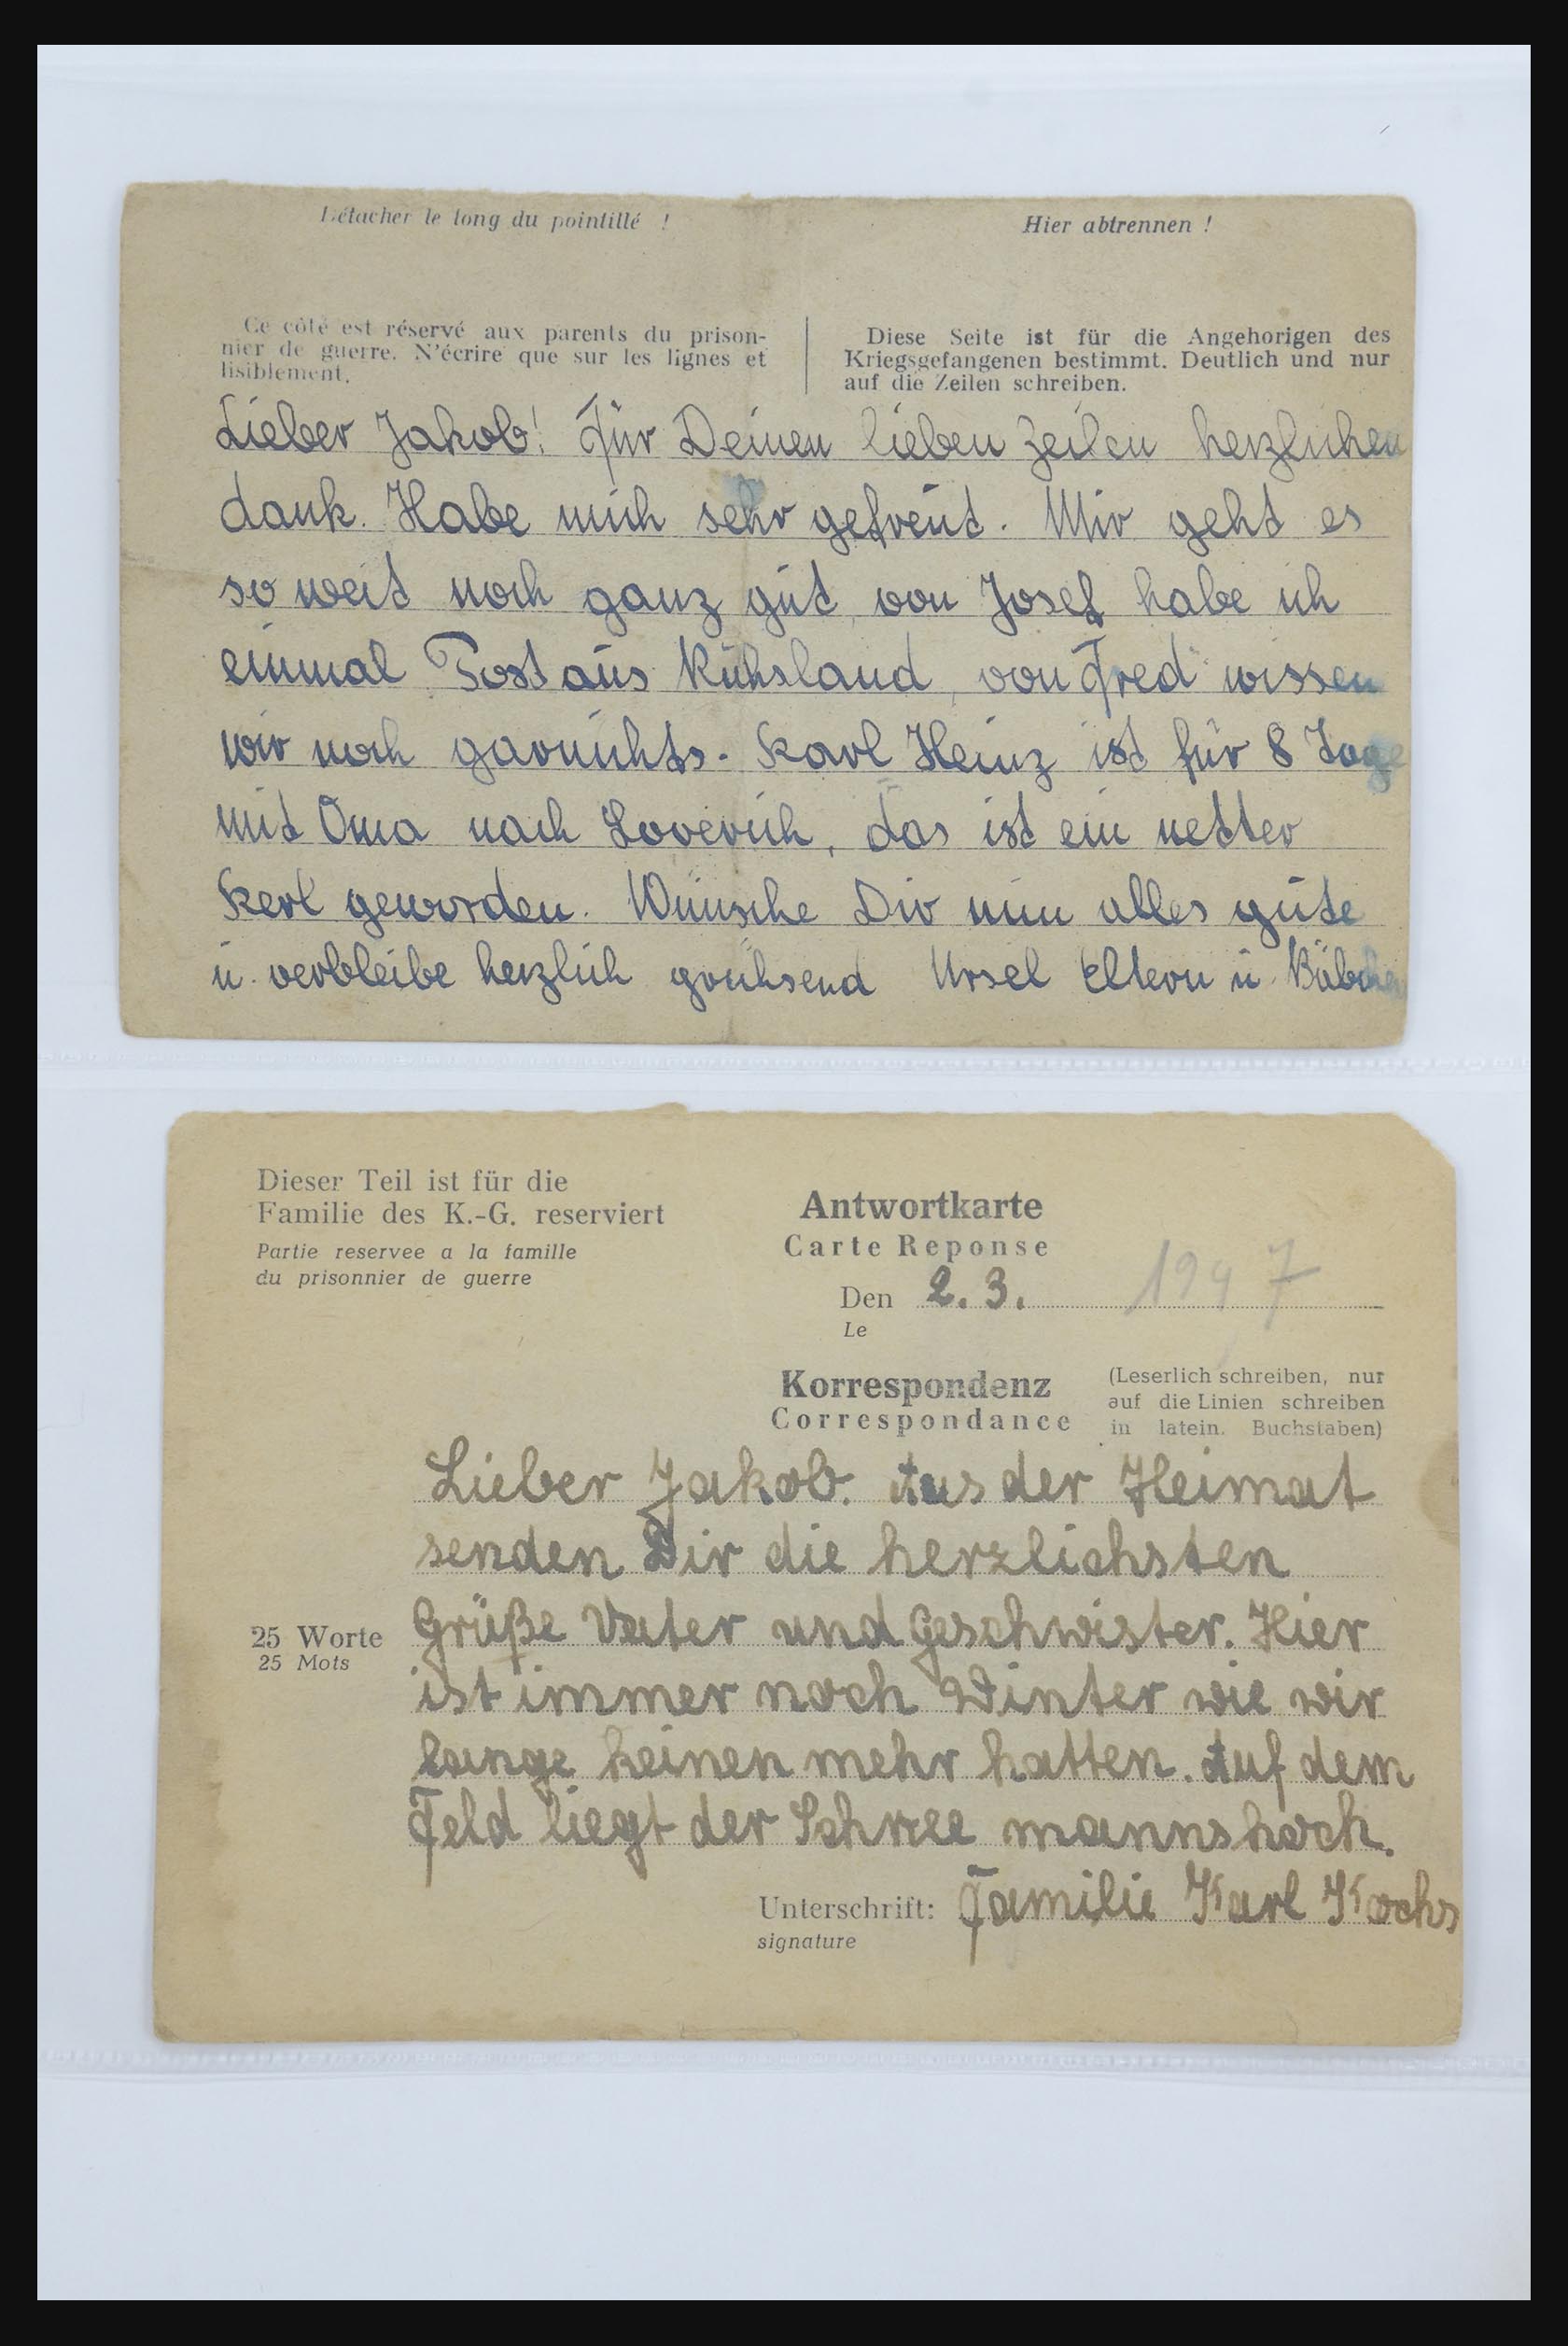 Détacher le long du pointillé !
Hier abtrennen !
Ce côté est réservé aux parents du prison-
nier de guerre. N'écrire que sur les lignes et
lisiblement.
Diese Seite ist für die Angehorigen des
Kriegsgefangenen bestimmt. Deutlich und nur
auf die Zeilen schreiben.
Lieber Jakob! Für Deinen lieben Zeilen herzlichen
dank. Habe mich sehr gefreut. Mir geht es
so weit noch ganz gut, von Josef habe ich
einmal Post aus Ruhsland, von Fred wissen
wir noch garnichts. Karl Heinz ist für 8 Tage
mit Oma nach Loverich, das ist ein netter
Kerl geworden. Wünsche Dir nun alles gute
u. verbleibe herzlich grühsend Ursel Eltern u. Bübchen
Dieser Teil ist für die
Familie des K.-G. reserviert
Partie reservee a la famille
du prisonnier de guerre
Antwortkarte
Carte Reponse
Den 2. 3. 1947
Le
Korrespondenz
Correspondance
(Leserlich schreiben, nur
auf die Linien schreiben
in latein. Buchstaben)
Lieber Jakob. Aus der Heimat
senden Dir die herzlichsten
25 Worte
25 Mots
Grüße Vater und Geschwister. Hier
ist immer noch Winter wie wir
lange keinen mehr hatten. Auf dem
Feld liegt der Schnee mannshoch.
Unterschrift: Familie Karl Kochs
signature